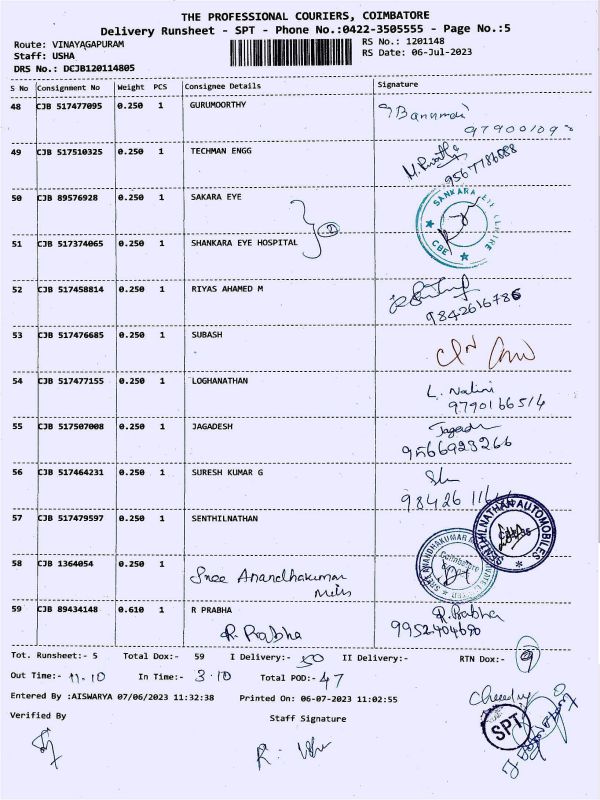 THE PROFESSIONAL COURIERS, COIMBATORE
Delivery Runsheet - SPT - Phone No.:0422-3505555 - Page No.:5
Route: VINAYAGAPURAM
RS No.: 1201148
Staff: USHA
RS Date: 06-Jul-2023
DRS No.: DCJB120114805
S No Consignment No Weight PCS Consignee Details Signature
48 CJB 517477095 0.250 1 GURUMOORTHY
49 CJB 517510325 0.250 1 TECHMAN ENGG
9567786688
50 CJB 89576928 0.250 1 SAKARA EYE
SANKARA EYE CENTRE CBE
2
51 CJB 517374065 0.250 1 SHANKARA EYE HOSPITAL
52 CJB 517458814 0.250 1 RIYAS AHAMED M
9842616786
53 CJB 517476685 0.250 1 SUBASH
54 CJB 517477155 0.250 1 LOGHANATHAN
L. Nalini
9790166514
55 CJB 517507008 0.250 1 JAGADESH
Jagadesh
9566923266
56 CJB 517464231 0.250 1 SURESH KUMAR G
57 CJB 517479597 0.250 1 SENTHILNATHAN
SENTHILNATHAN AUTOMOBILES
58 CJB 1364054 0.250 1
Sree Anandhakumar
Mills
Coimbatore
59 CJB 89434148 0.610 1 R PRABHA
R. Prabha
R. Prabha
9952404690
Tot. Runsheet:- 5 Total Dox:- 59 I Delivery:- 50 II Delivery:- RTN Dox:- 9
Out Time:- 11.10 In Time:- 3.10 Total POD:- 47
Entered By :AISWARYA 07/06/2023 11:32:38 Printed On: 06-07-2023 11:02:55
Verified By
Staff Signature
SPT